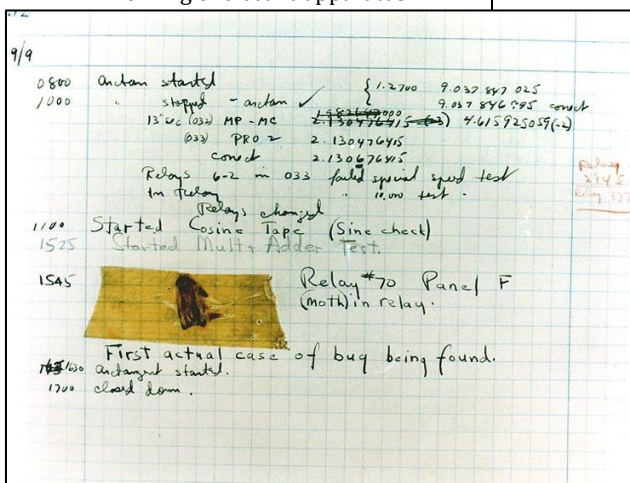 9/9
0800 Antan started { 1.2700 9.037 847 025
1000 " stopped - antan ✓ 9.037 846 995 conect
13" uc (032) MP - MC 2.130476415 4.615925059(-2)
(033) PRO 2 2.130476415
conect 2.130676415
Relays 6-2 in 033 failed special speed test
in relay " 10.000 test.
Relay
2145
Relay 337
Relays changed
1100 Started Cosine Tape (Sine check)
1525 Started Mult + Adder Test.
1545 Relay #70 Panel F
(moth) in relay.
First actual case of bug being found.
1630 antangent started.
1700 closed down.